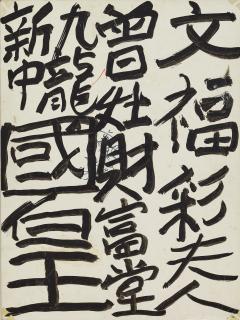 文福彩夫人
曾灶財富堂
九龍
新中
國皇